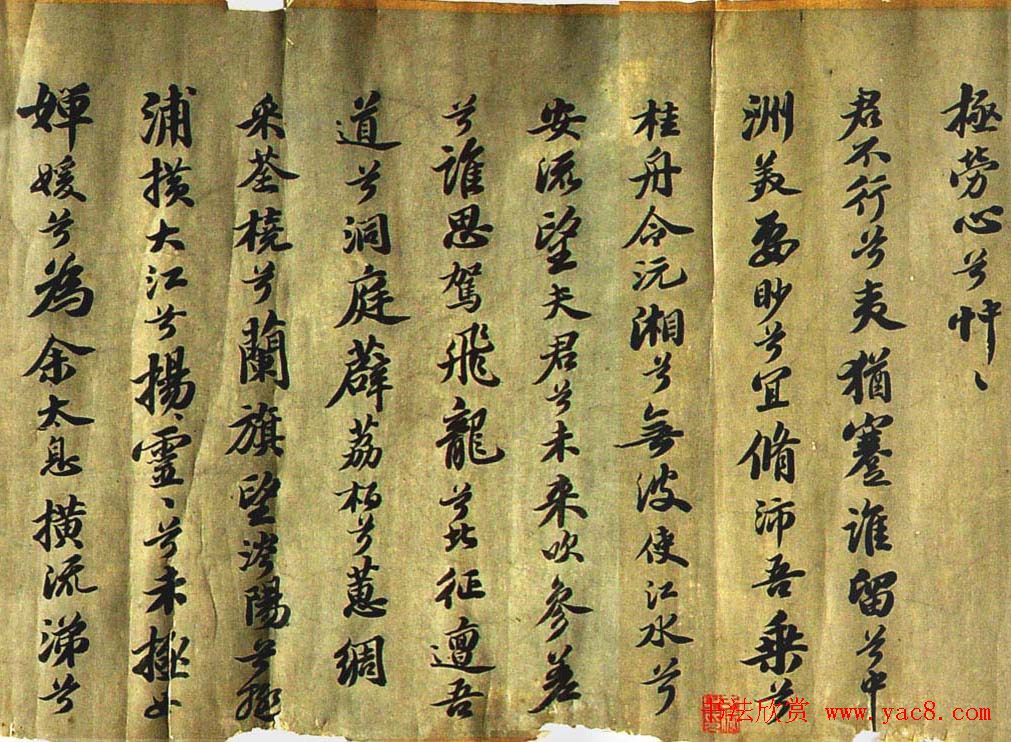 極勞心兮忡〻
君不行兮夷猶蹇誰留兮中
洲美要眇兮宜脩沛吾乗兮
桂舟令沅湘兮無波使江水兮
安流望夫君兮未来吹參差
兮誰思駕飛龍兮北征邅吾
道兮洞庭薜荔栢兮蕙綢
采荃橈兮蘭旗望涔陽兮極
浦横大江兮揚〻靈〻兮未極女
嬋媛兮為余太息横流涕兮
书法欣赏 www.yac8.com